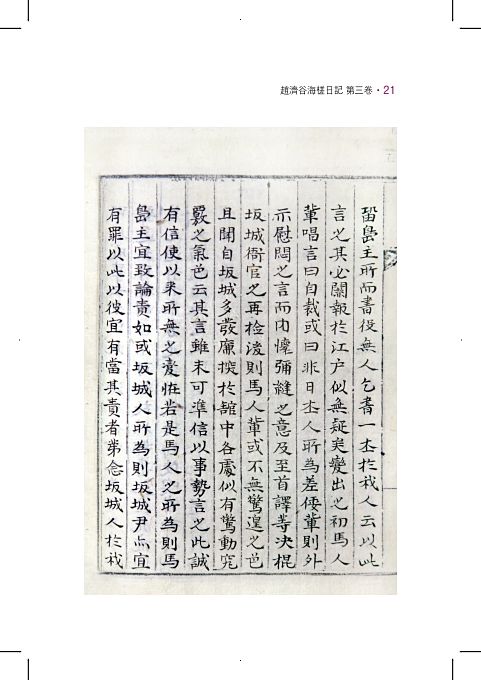 趙濟谷海槎日記 第三卷 • 21
留島主所而書役無人乞書一本於我人云以此
言之其必關報於江戶似無疑矣變出之初馬人
輩唱言曰自裁或曰非日本人所為差倭輩則外
示慰悶之言而內懷彌縫之意及至首譯等決棍
坂城衙官之再檢後則馬人輩或不無驚遑之色
且聞自坂城多發廉探於館中各處似有驚動究
覈之氣色云其言雖未可準信以事勢言之此誠
有信使以來所無之變怪若是馬人之所為則馬
島主宜致論責如或坂城人所為則坂城尹亦宜
有罪以此以彼宜有當其責者第念坂城人於我